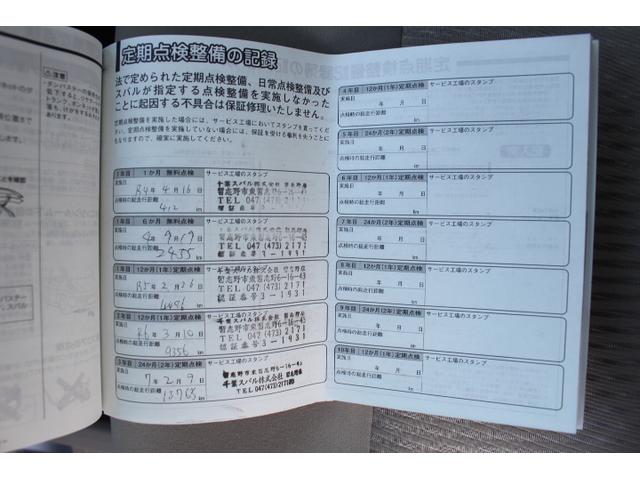 定期点検整備の記録
法で定められた定期点検整備、日常点検整備及び
スバルが指定する点検整備を実施しなかった
ことに起因する不具合は保証修理いたしません。
定期点検整備を実施した場合には、サービス工場においてスタンプを貰ってくださ
い。定期点検整備を実施していない場合には、保証を受ける権利を失うことに
もなりますので、確実に実施してください。
1年目 1か月 無料点検 サービス工場のスタンプ
実施日 R4年 4月 16日
点検時の総走行距離 412 km
千葉スバル株式会社 習志野店
習志野市東習志野6-16-43
TEL 047(473)2171
1年目 6か月 無料点検 サービス工場のスタンプ
実施日 4年 9月 19日
点検時の総走行距離 2455 km
習志野市東習志野6-16-43
TEL 047(473)2171
認証番号3-1931
1年目 12か月(1年)定期点検 サービス工場のスタンプ
実施日 R5年 2月 26日
点検時の総走行距離 4496 km
千葉スバル株式会社 習志野店
習志野市東習志野6-16-43
TEL 047(473)2171
認証番号3-1931
2年目 12か月(1年)定期点検 サービス工場のスタンプ
実施日 R6年 3月 10日
点検時の総走行距離 9356 km
千葉スバル株式会社 習志野店
習志野市東習志野6-16-43
TEL 047(473)2171
認証番号3-1931
3年目 24か月(2年)定期点検 サービス工場のスタンプ
実施日 7年 2月 9日
点検時の総走行距離 13768 km
習志野市東習志野6-16-43
千葉スバル株式会社 習志野店
TEL 047(473)2171
4年目 12か月(1年)定期点検 サービス工場のスタンプ
実施日 年 月 日
点検時の総走行距離 km
5年目 24か月(2年)定期点検 サービス工場のスタンプ
実施日 年 月 日
点検時の総走行距離 km
6年目 12か月(1年)定期点検 サービス工場のスタンプ
実施日 年 月 日
点検時の総走行距離 km
7年目 24か月(2年)定期点検 サービス工場のスタンプ
実施日 年 月 日
点検時の総走行距離 km
8年目 12か月(1年)定期点検 サービス工場のスタンプ
実施日 年 月 日
点検時の総走行距離 km
9年目 24か月(2年)定期点検 サービス工場のスタンプ
実施日 年 月 日
点検時の総走行距離 km
10年目 12か月(1年)定期点検 サービス工場のスタンプ
実施日 年 月 日
点検時の総走行距離 km
10年目 24か月(2年)定期点検 サービス工場のスタンプ
実施日 年 月 日
点検時の総走行距離 km
注意